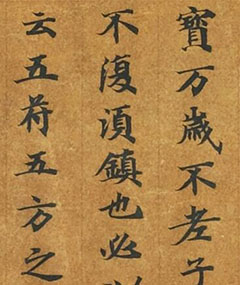 寶万歲不老子
不復須鎮也必
云五苻五方之